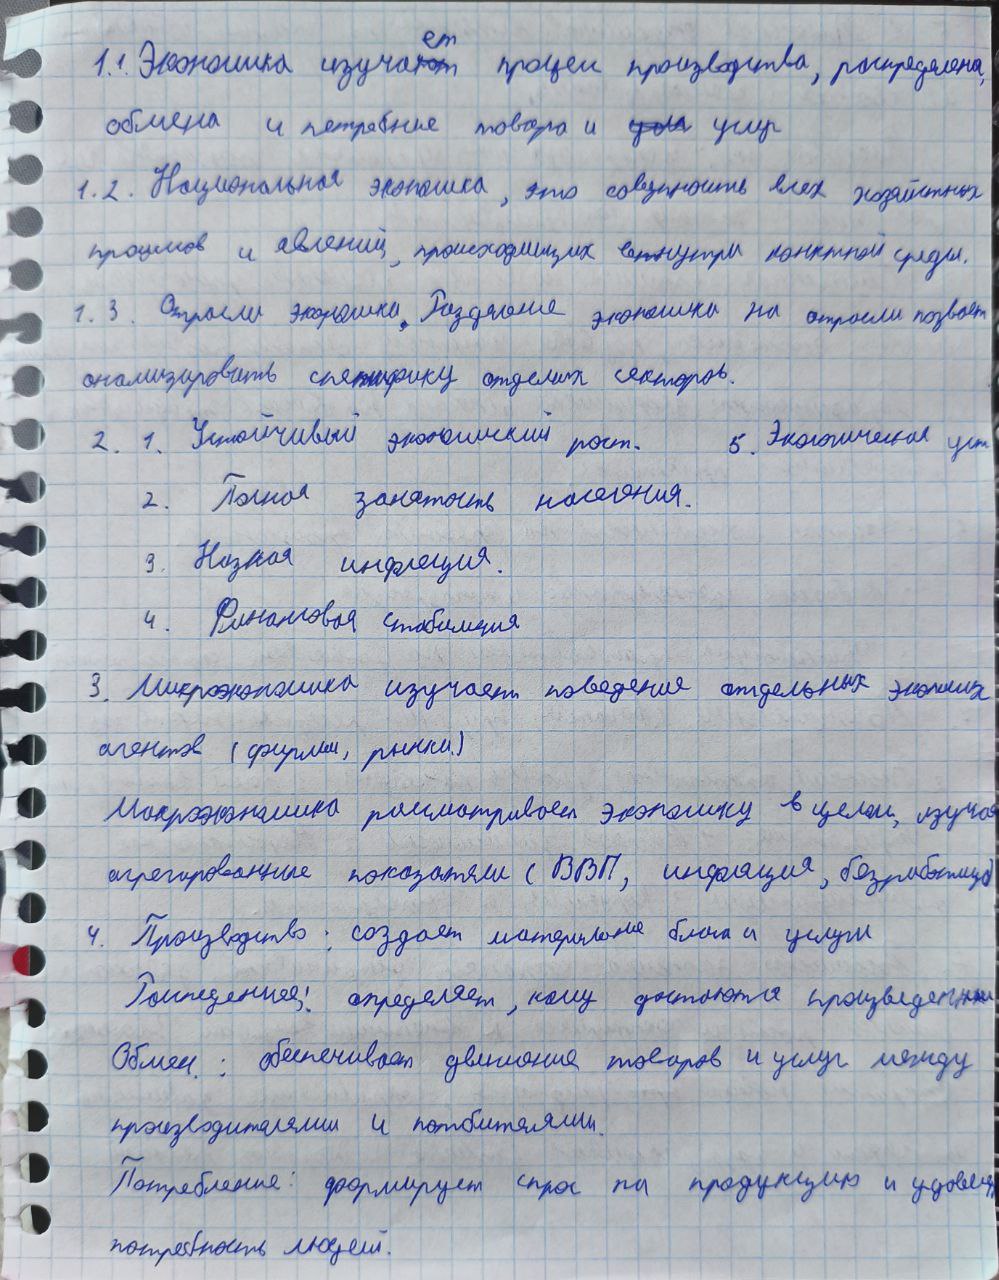 1.1. Экономика изучает процес производства, распределена,
обмена и петребние товара и услуг
1.2. Национальная экономика, это совукпность всех хозяйстных
процессов и явлений, происходящих внутри конктной среды.
1.3. Отрасли экономика. Разделение экономика на отрасли позвает
анализировать специфику отделих секторов.
2. 1. Устойчивый экономический рост. 5. Экологическая уст
2. Полная занятость населения.
3. Низкая инфляция.
4. Финансовая стабилция
3. Микроэкономика изучает поведение отдельных экономих
агентов (фирмы, рынки)
Макроэкономика рассматривает экономику в целом, изучая
агрегированные показатели (ВВП, инфляция, безработица)
4. Производство: создает материлные блага и услуги
определяет, кому достаются
Обмен: обеспечивает движение товаров и услуг между
производителями и потбителями.
Потребление: формирует спрос на продукцию и удовлет
потребность людей.